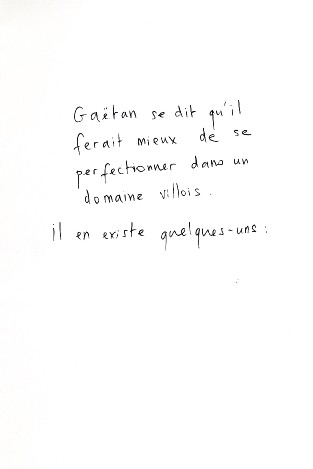 Gaëtan se dit qu'il
ferait mieux de se
perfectionner dans un
domaine villois.
il en existe quelques-uns :